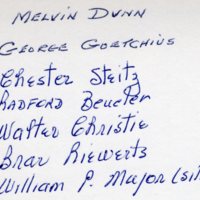 MELVIN DUNN
GEORGE GOETCHIUS
Chester Steitz
RADFORD Beucler
Walter Christie
Brar Riewerts
William P. Major (sit